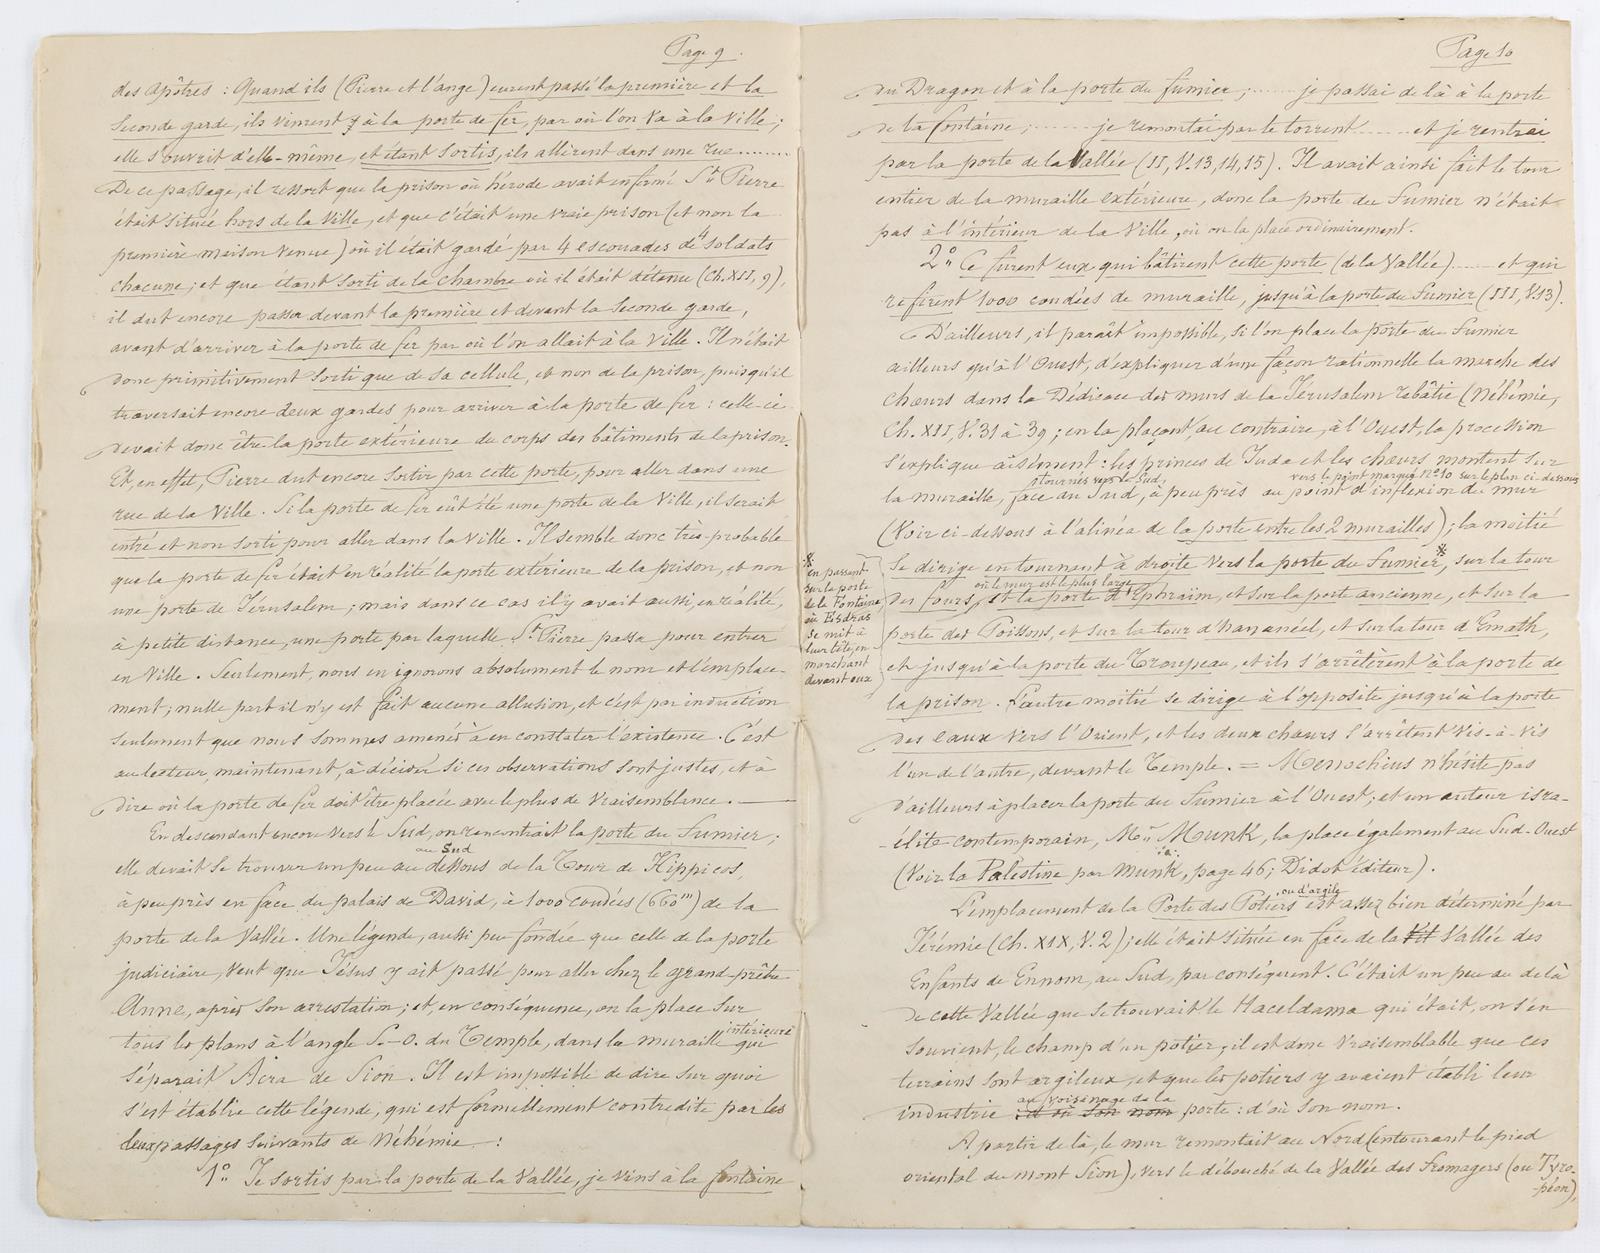 Page 9.
des apôtres : Quand ils (Pierre et l'ange) eurent passé la première et la
seconde garde, ils vinrent à la porte de fer, par où l'on va à la ville ;
elle s'ouvrit d'elle-même, et étant sortis, ils allèrent dans une rue ........
De ce passage, il ressort que la prison où hérode avait enfermé St Pierre
était située hors de la Ville, et que c'était une vraie prison (et non la
première maison venue) où il était gardé par 4 escouades de 4 soldats
chacune ; et que étant sorti de la chambre où il était détenu (Ch. XII, 9),
il dut encore passer devant la première et devant la seconde garde,
avant d'arriver à la porte de fer par où l'on allait à la Ville. Il n'était
donc primitivement sorti que de sa cellule, et non de la prison, puisqu'il
traversait encore deux gardes pour arriver à la porte de fer : celle-ci
devait donc être la porte extérieure du corps des bâtiments de la prison.
Et, en effet, Pierre dut encore sortir par cette porte, pour aller dans une
rue de la Ville. Si la porte de fer eût été une porte de la Ville, il serait
entré et non sorti pour aller dans la Ville. Il semble donc très-probable
que la porte de fer était en réalité la porte extérieure de la prison, et non
une porte de Jérusalem ; mais dans ce cas il y avait aussi, en réalité,
à petite distance, une porte par laquelle St Pierre passa pour entrer
en Ville. Seulement, nous en ignorons absolument le nom et l'emplace-
ment ; nulle part il n'y est fait aucune allusion, et c'est par induction
seulement que nous sommes amenés à en constater l'existence. C'est
au lecteur, maintenant, à décider si ces observations sont justes, et à
dire où la porte de fer doit être placée avec le plus de vraisemblance. —
En descendant encore vers le Sud, on rencontrait la porte du Fumier ;
au Sud
elle devait se trouver un peu au dessous de la Tour de Hippicos,
à peu près en face du palais de David, à 1000 coudées (660m) de la
porte de la Vallée. Une légende, aussi peu fondée que celle de la porte
judiciaire, veut que Jésus y ait passé pour aller chez le grand-prêtre
Anne, après son arrestation ; et, en conséquence, on la place sur
tous les plans à l'angle S.-O. du Temple, dans la muraille intérieure qui
séparait Acra de Sion. Il est impossible de dire sur quoi
s'est établie cette légende, qui est formellement contredite par les
deux passages suivants de Néhémie :
1° Je sortis par la porte de la Vallée, je vins à la fontaine
Page 10
du Dragon et à la porte du fumier ; ...... je passai de là à la porte
de la fontaine ; ........ je remontai par le torrent ....... et je rentrai
par la porte de la Vallée (II, V. 13, 14, 15). Il avait ainsi fait le tour
entier de la muraille extérieure, donc la porte du Fumier n'était
pas à l'intérieur de la Ville, où on la place ordinairement.
2° Ce furent eux qui bâtirent cette porte (de la Vallée) ...... et qui
refirent 1000 coudées de muraille, jusqu'à la porte du Fumier (III, V. 13).
D'ailleurs, il paraît impossible, si l'on place la porte du Fumier
ailleurs qu'à l'Ouest, d'expliquer d'une façon rationnelle la marche des
chœurs dans la Dédicace des murs de la Jérusalem rebâtie (Néhémie,
Ch. XII, V. 31 à 39 ; en la plaçant, au contraire, à l'Ouest, la procession
s'explique aisément : les princes de Juda et les chœurs montent sur
tournés vers le Sud, vers le point marqué n° 10 sur le plan ci-dessous
la muraille, face au Sud, à peu près au point d'inflexion du mur
(Voir ci-dessous à l'alinéa de la porte entre les 2 murailles) ; la moitié
se dirige en tournant à droite vers la porte du Fumier,* sur la tour
où le mur est le plus large
des fours, et la porte d'Ephraïm, et sur la porte ancienne, et sur la
porte des Poissons, et sur la tour d'hananéel, et sur la tour d'Emath,
et jusqu'à la porte du Troupeau, et ils s'arrêtèrent à la porte de
la prison. L'autre moitié se dirige à l'opposite jusqu'à la porte
des eaux vers l'Orient, et les deux chœurs s'arrêtent vis-à-vis
l'un de l'autre, devant le Temple. = Menochius n'hésite pas
d'ailleurs à placer la porte du Fumier à l'Ouest ; et un auteur isra-
-élite contemporain, Mr Munk, la place également au Sud-Ouest
(Voir la Palestine par Munk, page 46 ; Didot éditeur).
ou d'argile
L'emplacement de la Porte des Potiers est assez bien déterminé par
Jérémie (Ch. XIX, V. 2) ; elle était située en face de la Vallée des
Enfants de Ennom, au Sud, par conséquent. C'était un peu au delà
de cette Vallée que se trouvait le Haceldama qui était, on s'en
souvient, le champ d'un potier ; il est donc vraisemblable que ces
terrains sont argileux, et que les potiers y avaient établi leur
au voisinage de la
industrie : d'où son nom porte : d'où son nom.
A partir de là, le mur remontait au Nord (entourant le pied
oriental du mont Sion), vers le débouché de la Vallée des Fromagers (ou Tyro-
-péon),
* en passant
sur la porte
de la Fontaine
où Esdras
se mit à
leur tête, en
marchant
devant eux